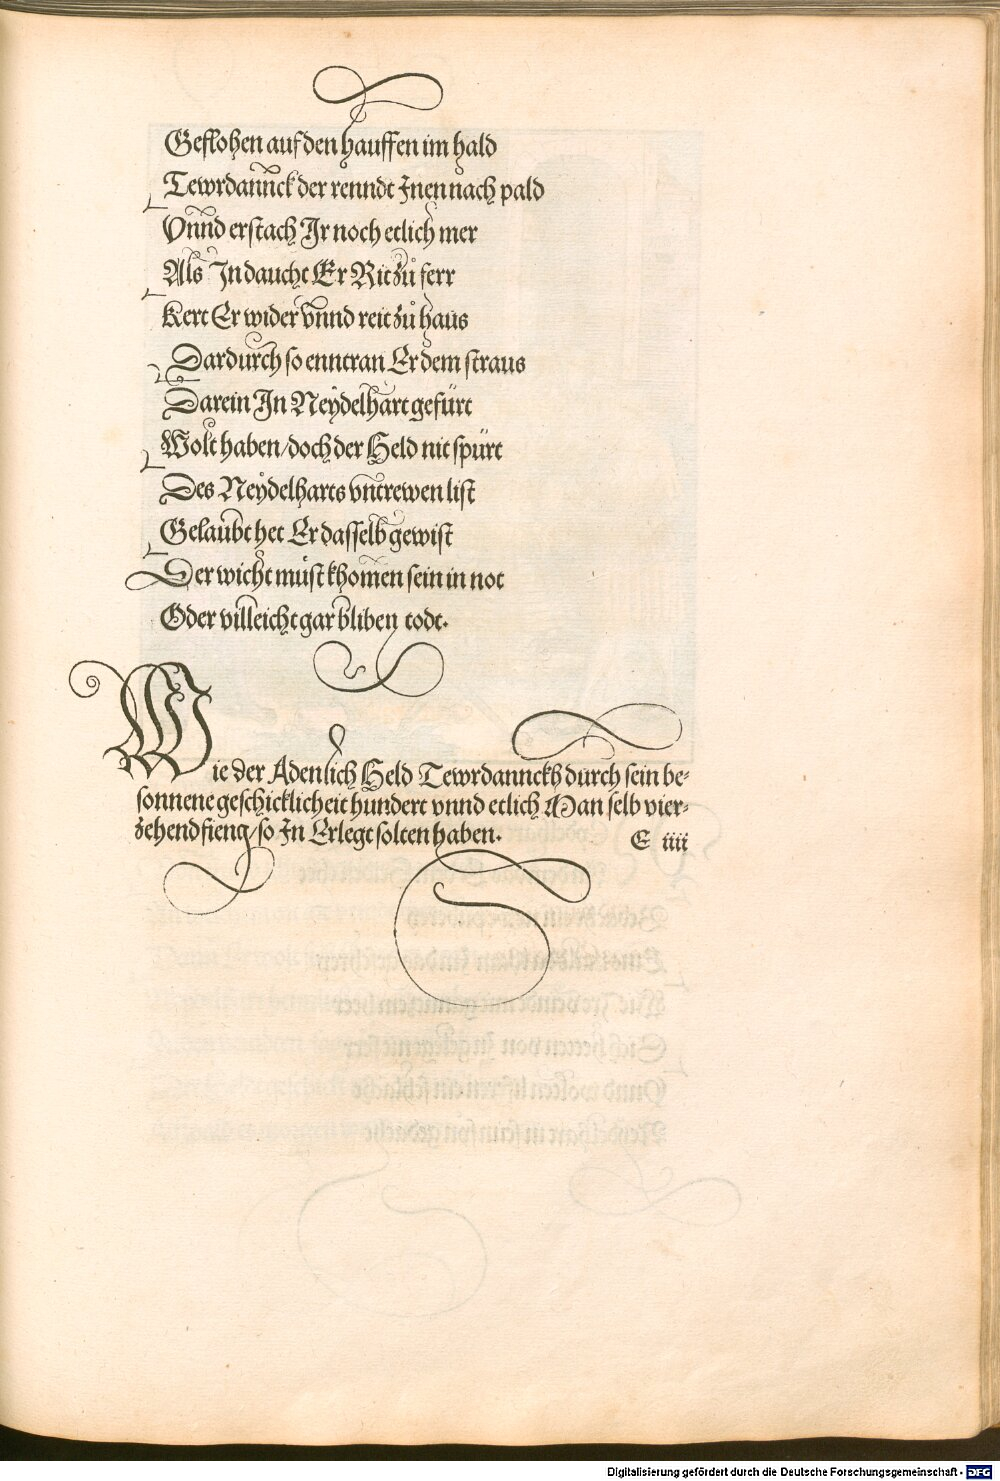 Geflohen auf den hauffen im hald
Tewrdannck der renndt Jnen nach pald
Vnnd erstach Jr noch etlich mer
Als Jn daucht Er Rit zů ferr
Kert Er wider vnnd reit zů haus
Dardurch so enntran Er dem straus
Darein Jn Neydelhart gefürt
Wolt haben/doch der Held nit spürt
Des Neydelharts vntrewen list
Gelaubt het Er dasselb gewist
Der wicht můst khomen sein in not
Oder villeicht gar bliben todt.
Wie der Adenlich Held Tewrdannckh durch sein be-
sonnene geschicklicheit hundert vnnd etlich Man selb vier-
zehend fieng/so Jn Erlegt solten haben.
E iiii
Digitalisierung gefördert durch die Deutsche Forschungsgemeinschaft - DFG